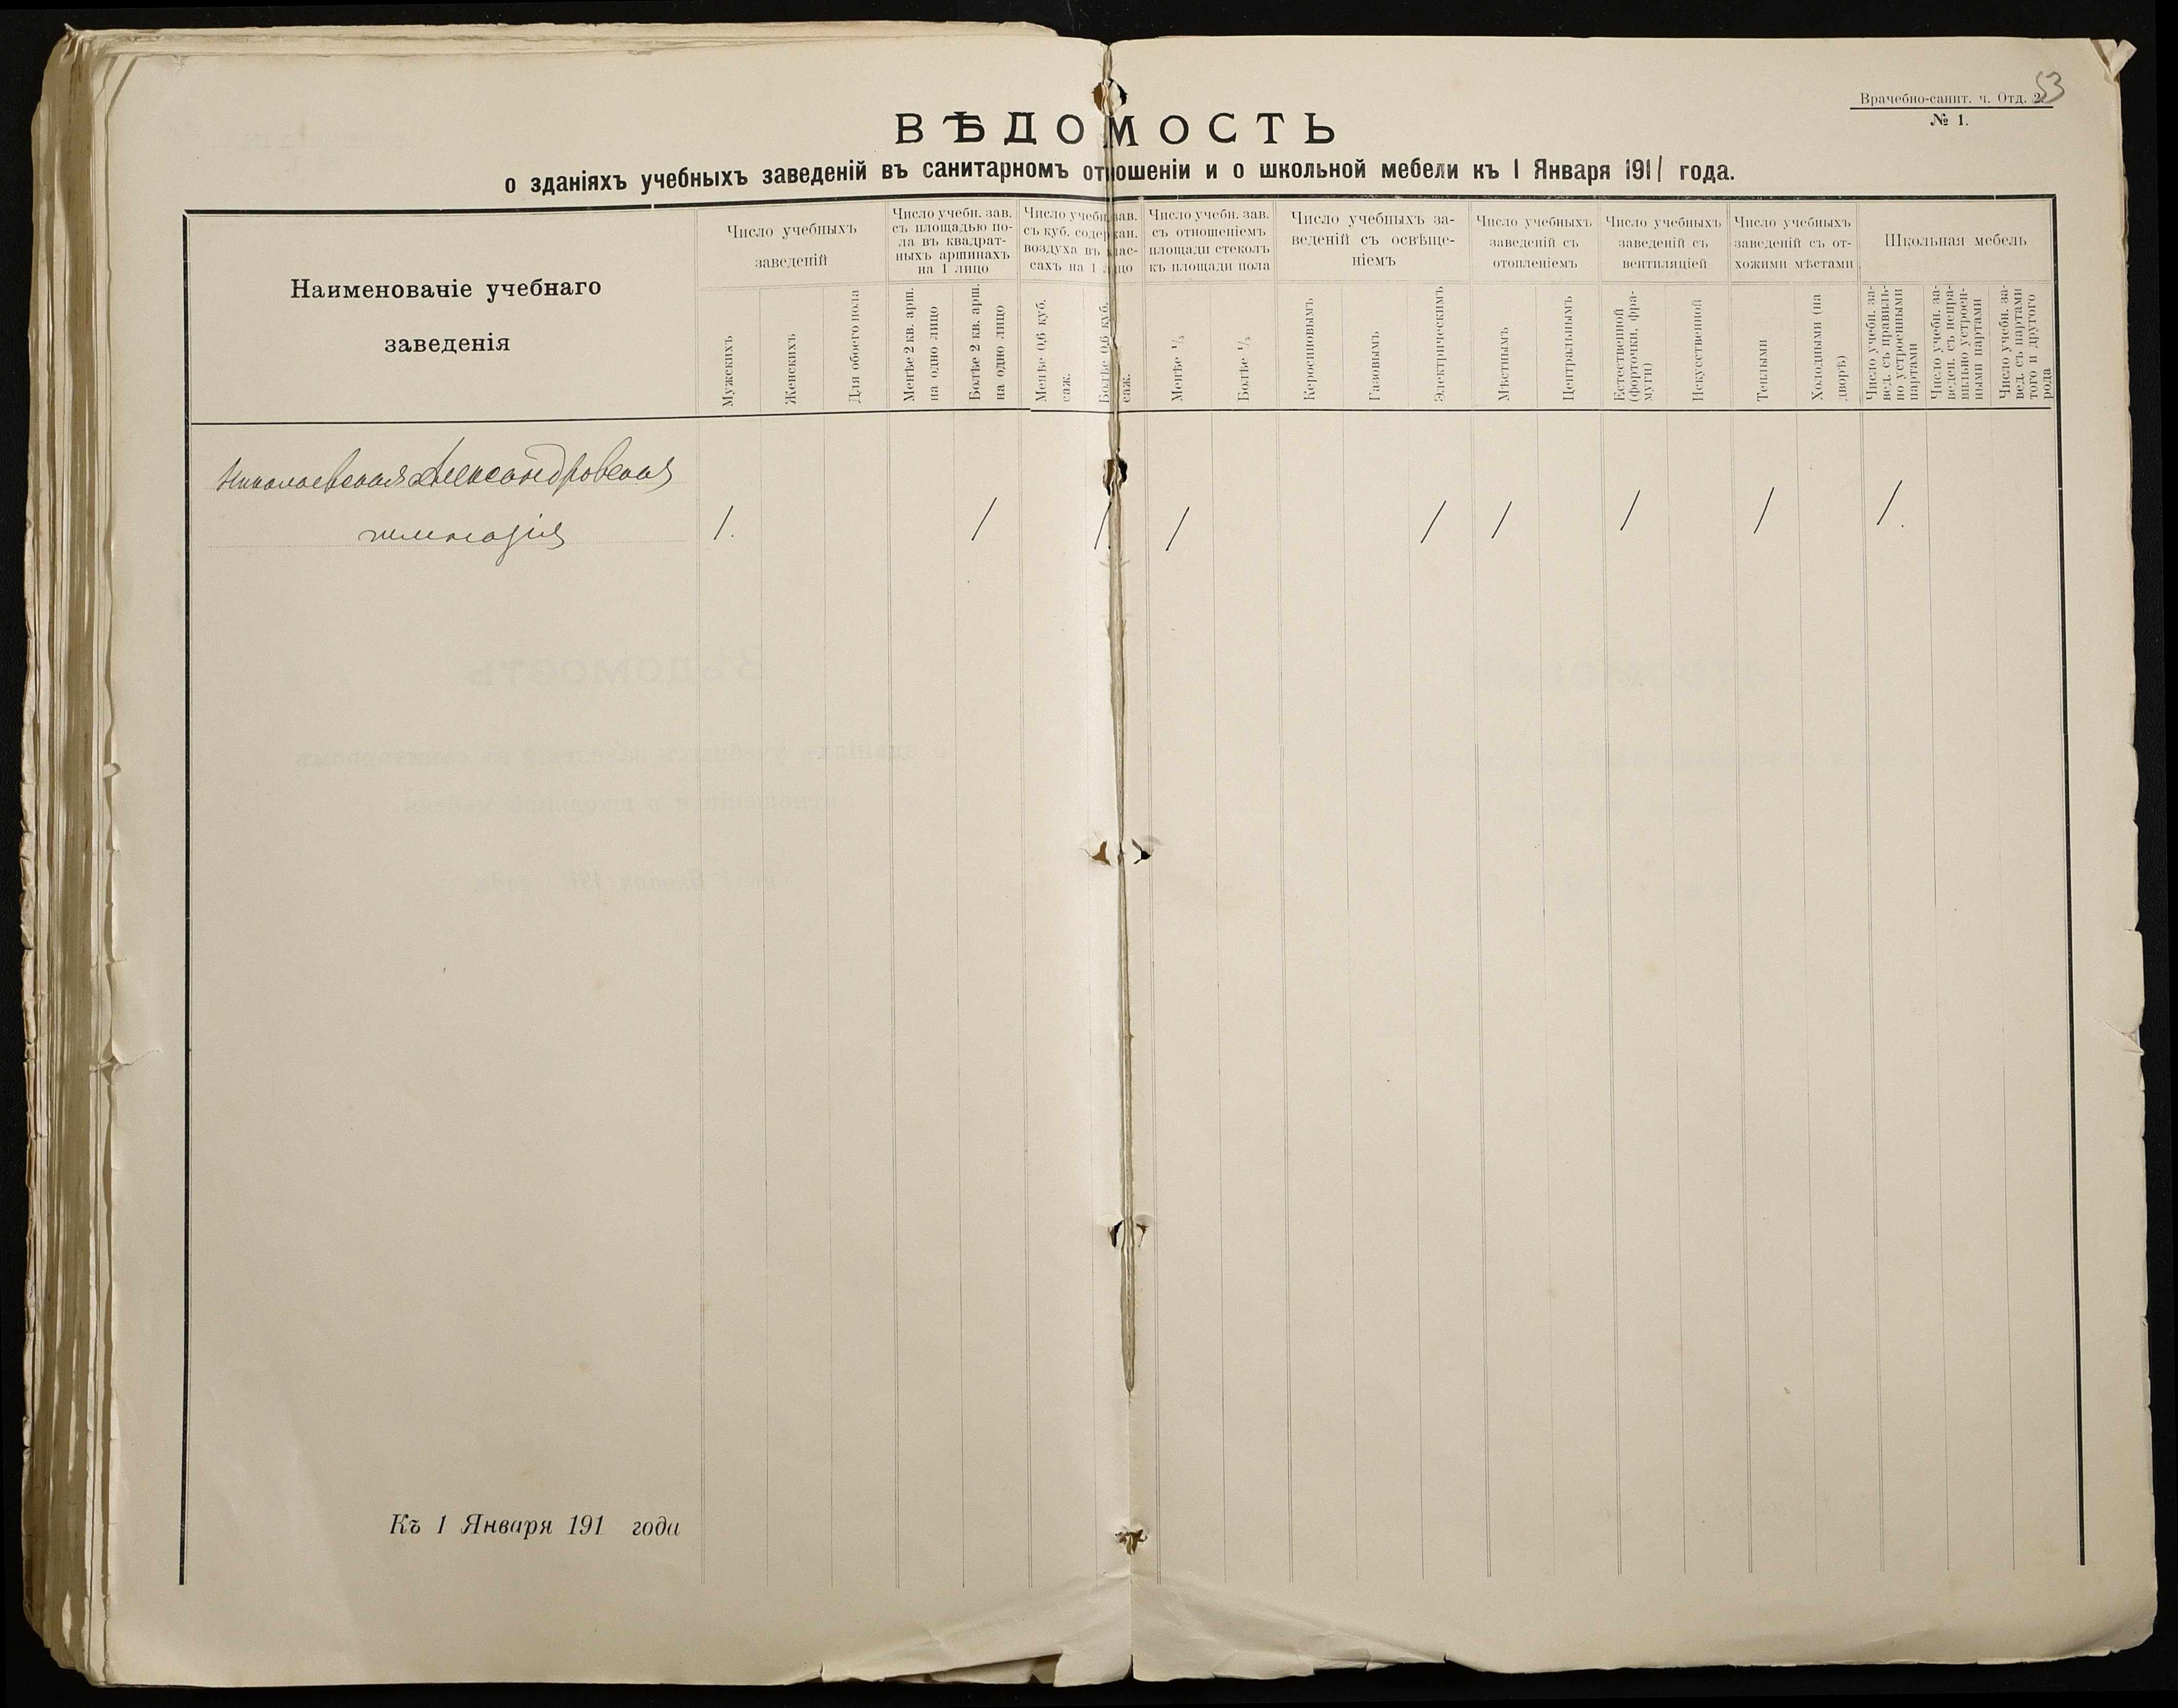 53
Врачебно-санит. ч. Отд. 2.
№ 1.
ВѢДОМОСТЬ
о зданіяхъ учебныхъ заведеній въ санитарномъ отношеніи и о школьной мебели къ 1 Января 1911 года.
Наименованіе учебнаго
заведенія
Число учебныхъ
заведеній
Мужскихъ
Женскихъ
Для обоего пола
Число учебн. зав.
съ площадью по-
ла въ квадрат-
ныхъ аршинахъ
на 1 лицо
Менѣе 2 кв. арш.
на одно лицо
Болѣе 2 кв. арш.
на одно лицо
Число учебн. зав.
съ куб. содержан.
воздуха въ
сахъ на 1 лицо
Менѣе 0,6 куб.
саж.
Болѣе 0,6 куб.
саж.
Число учебн. зав.
съ отношеніемъ
площади стеколъ
къ площади пола
Менѣе 1/5
Болѣе 1/5
Число учебныхъ за-
веденій съ освѣще-
ніемъ
Керосиновымъ
Газовымъ
Электрическимъ
Число учебныхъ
заведеній съ
отопленіемъ
Мѣстнымъ
Центральнымъ
Число учебныхъ
заведеній съ
вентиляціей
Естественной
(форточки, фра-
муги)
Искусственной
Число учебныхъ
заведеній съ от-
хожими мѣстами
Теплыми
Холодными (на
дворѣ)
Школьная мебель
Число учебн. за-
вед. съ правиль-
но устроенными
партами
Число учебн. за-
веден. съ непра-
вильно устроен-
ными партами
Число учебн. за-
вед. съ партами
того и другого
рода
Николаевская Александровская
гимназія 1. 1 1 1 1 1 1 1 1.
Къ 1 Января 191 года